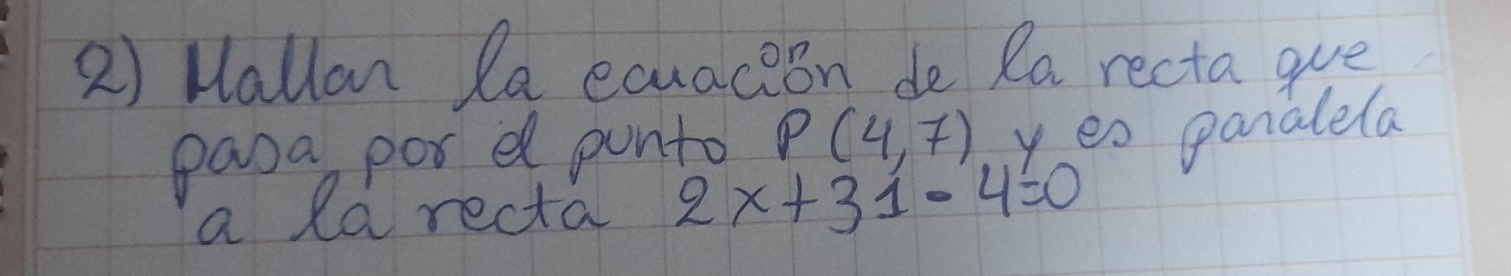 2) Hallar la ecuación de la recta que
pasa por el punto P(4,7) y es paralela
a la recta 2x+31-4=0